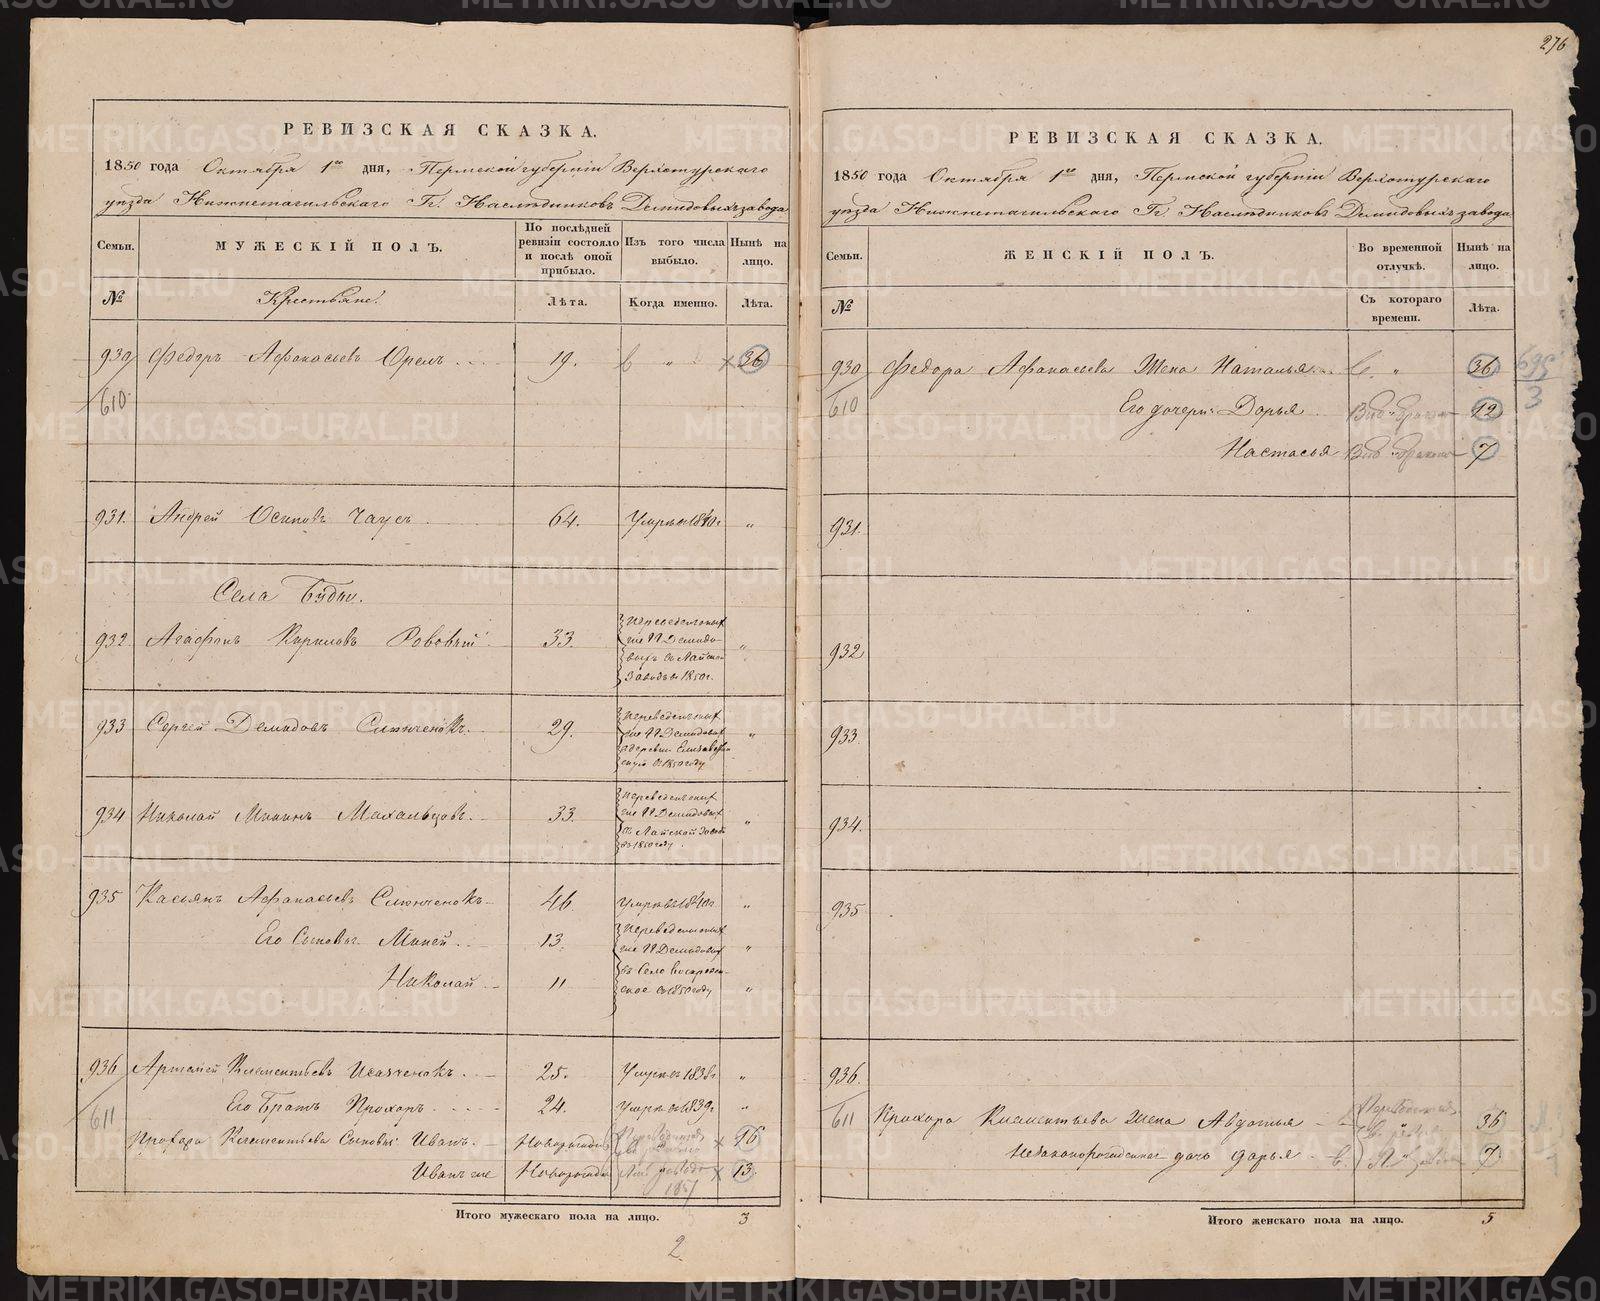 276
РЕВИЗСКАЯ СКАЗКА.
1850 года Октября 1го дня, Пермской губернии Верхотурскаго
уѣзда Нижнетагильскаго Гг. Наслѣдниковъ Демидовыхъ завода
Семьи. МУЖЕСКІЙ ПОЛЪ. По послѣдней ревизіи состояло и послѣ оной прибыло. Изъ того числа выбыло. Нынѣ на лицо.
№ Крестьяне. Лѣта. Когда именно. Лѣта.
930 Федоръ Афанасьевъ Орелъ 19. " 36
610
931. Андрей Осиповъ Чаусъ 64. Умре въ 1840г. "
Села Буды.
932. Агафонъ Кириловъ 33. "
Гг Демидо-
выхъ въ Лайской
Заводъ въ 1850г.
933 Сергей Демидовъ 29. "
Гг Демидовых
въ 1850 году
934 Николай Мининъ 33. "
Гг Демидовых
въ Лайской Завод
въ 1850 году
935 Касьянъ Афанасьевъ 46. Умре въ 1840г "
Его Сыновья Миней 13. "
Гг Демидовых
въ Село Воскресен-
Николай 11 ское въ 1850 году "
936 Клементьевъ 25. Умре въ 1838г "
Его Братъ Прохоръ 24. Умре въ 1839г "
611
Прохора Клементьева Сыновья Иванъ. Новорожден 16
Иванъ же Новорожден 13.
1857
Итого мужескаго пола на лицо. 3
2
РЕВИЗСКАЯ СКАЗКА.
1850 года Октября 1го дня, Пермской губерніи Верхотурскаго
уѣзда Нижнетагильскаго Гг. Наслѣдниковъ Демидовыхъ завода
Семьи. ЖЕНСКІЙ ПОЛЪ. Во временной отлучкѣ. Нынѣ на лицо.
№ Съ котораго времени. Лѣта.
930 Федора Афанасьева Жена Наталья " 36 695
610 Его дочери: Дарья 12 3
Настасья 7
931.
932
933
934.
935
936.
611 Прохора Клементьева Жена Авдотья 36
Незаконорожденная дочь Дарья 7
Итого женскаго пола на лицо. 5
METRIKI.GASO-URAL.RU